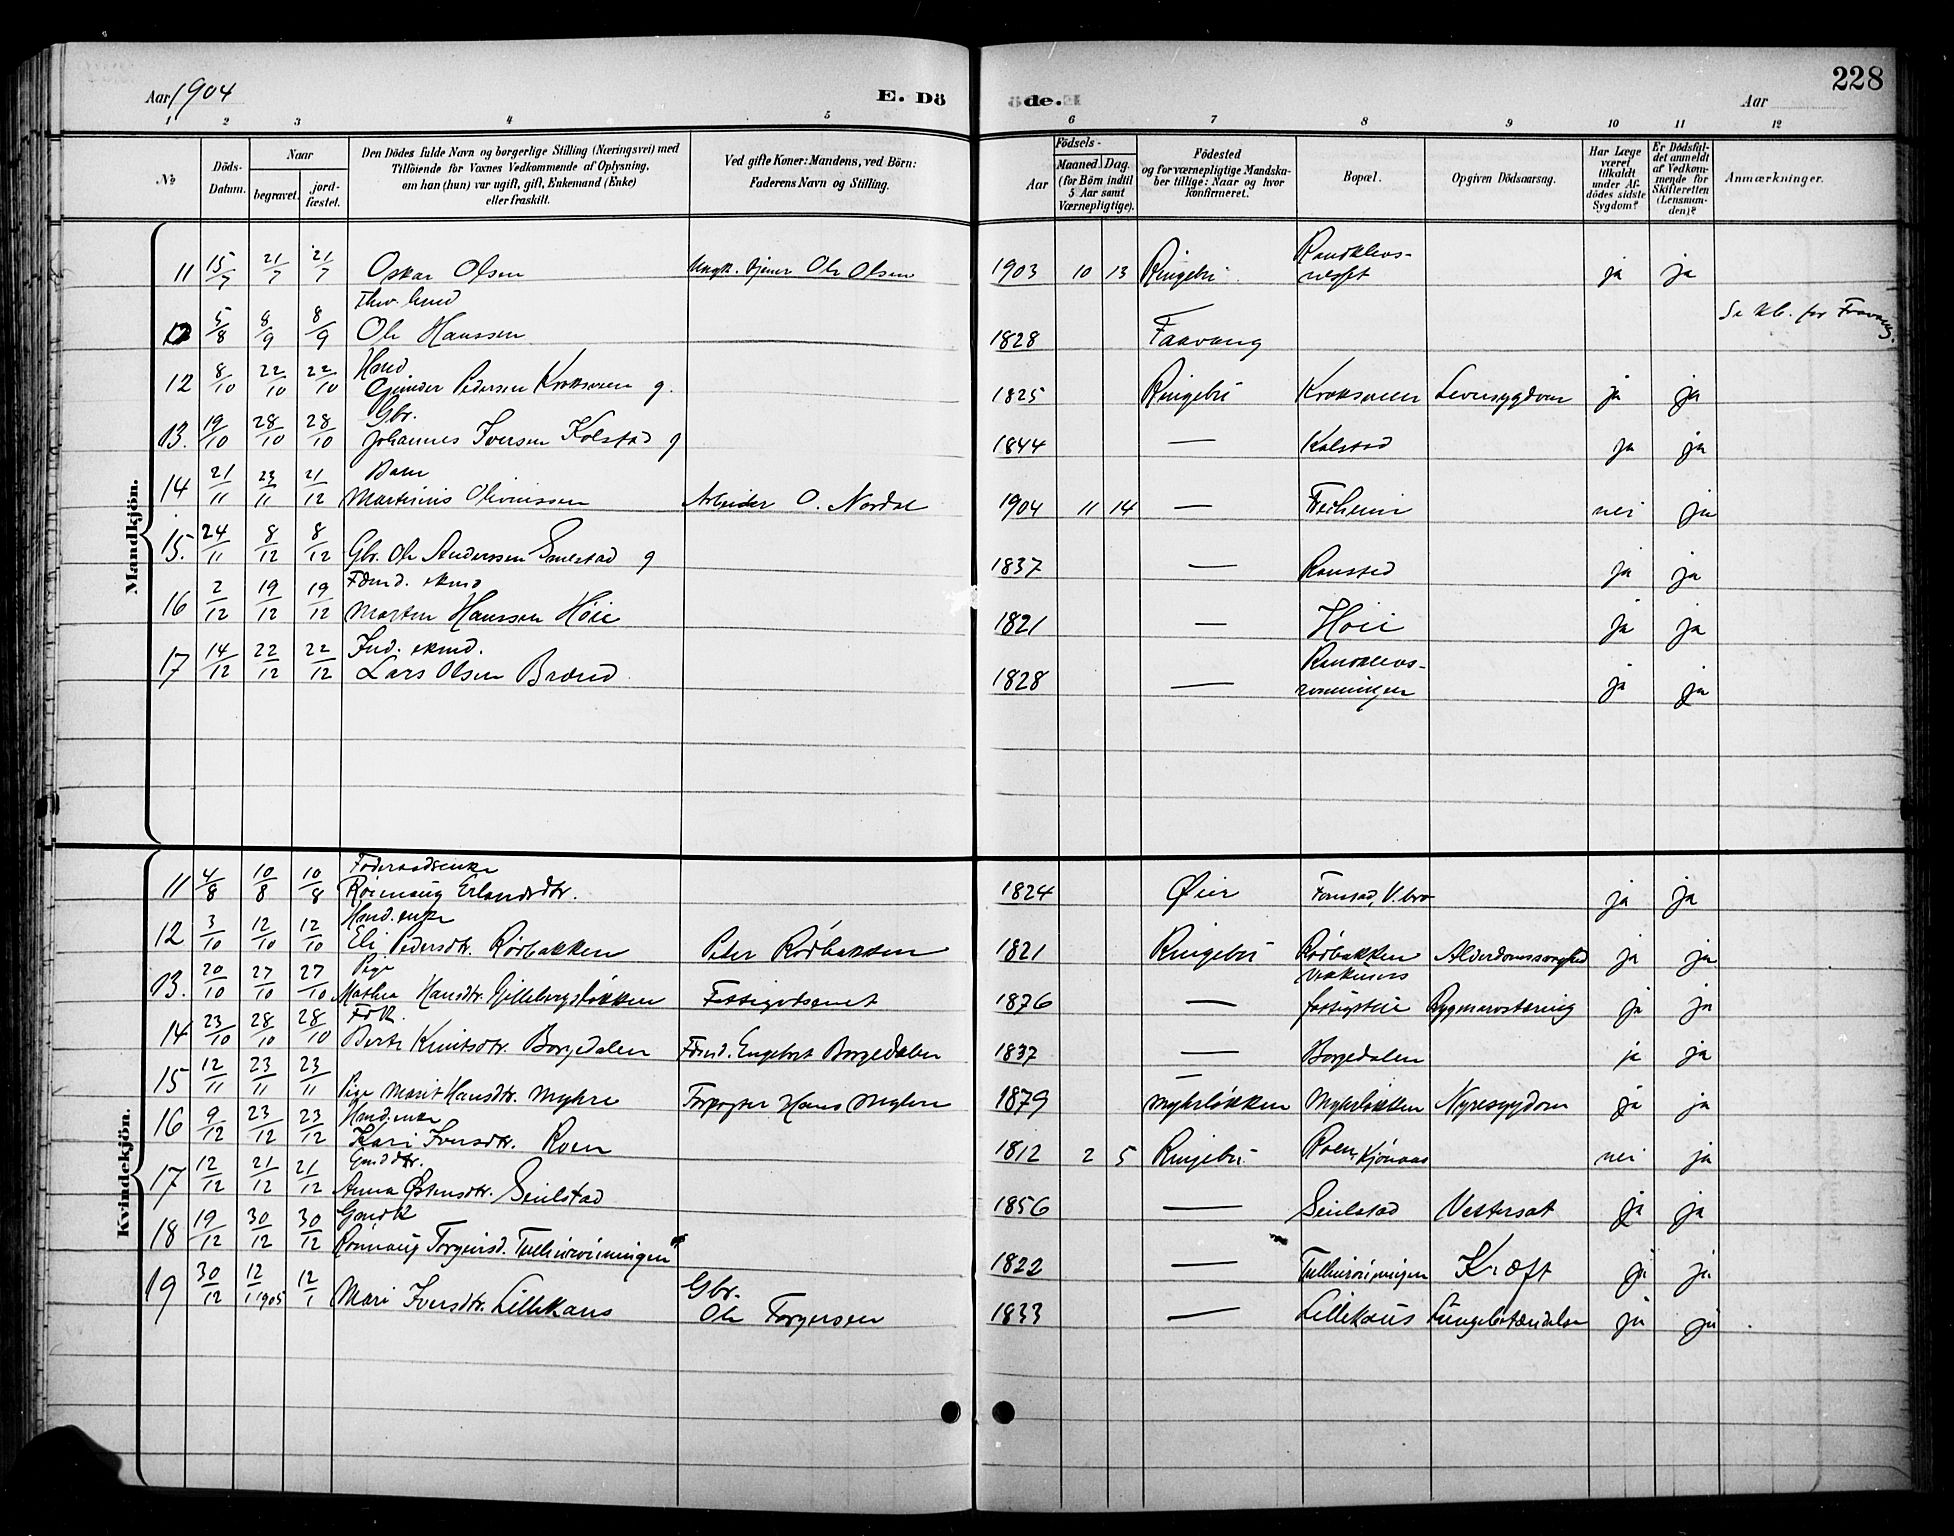 Aar 1904 E. Dö de. Aar 228
1 2 3 4 5 6 7 8 9 10 11 12
No Döds-Datum. Naar begravet. jord-fæstet. Den Dödes fulde Navn og borgerlige Stilling (Næringsvei) med Tilföiende for Voxnes Vedkommende af Oplysning, om han (hun) var ugift, gift, Enkemand (Enke) eller fraskilt. Ved gifte Koner: Mandens, ved Börn: Faderens Navn og Stilling. Födsels- Aar Maaned. Dag. (for Börn indtil 5 Aar samt Værnepligtige). Födested og for værnepligtige Mandska-ber tillige: Naar og hvor konfirmeret. Bopæl. Opgiven Dödsaarsag. Har Læge været tilkaldt under Af-dödes sidste Sygdom? Er Dödsfal-det anmeldt af Vedkom-mende for Skifteretten (Lensman-den)? Anmærkninger.
Mandkjön.
11 15/7 21/7 21/7 Oskar Olsen Ungk. tjener Ole Olsen 1903 10 13 Ringebu Randklevs- ja ja
5/8 8/9 8/9 Ole Hanssen 1828 Faavang Se kb. for Fravang.
12 8/10 22/10 22/10 Haand Gunder Pedersen Kroksveen g. 1825 Ringebu Kroksveen Leversygdom ja ja
13. 19/10 28/10 28/10 Gbr. Johannes Iversen Kolstad g 1844 — Kolstad ja ja
14 21/11 23/11 21/12 Barn Martinius Olivinissen Arbeider O. Nordsl 1904 11 14 — nei ja
15. 24/11 8/12 8/12 Gbr. Ole Anderssen g 1837 — ja ja
16 2/12 19/12 19/12 Fdmd. ekmd Morten Hanssen Høie 1821 — Høie ja ja
17 14/12 22/12 22/12 Ind. ekmd. Lars Olsen Brænd 1828 — Randklevs-rønningen ja ja
Kvindekjön.
11 4/8 10/8 10/8 Føderaadsenke Rønnaug Erlandsdtr. 1824 Øier Fonstad, V. bro ja ja
12 3/10 12/10 12/10 Haand. enke Eli Pedersdtr. Rødbakken Peder Rødbakken 1821 Ringebu Rødbakken Alderdomssvaghed ja ja
13. 20/10 27/10 27/10 Pige Mathea Hansdtr. Gillebergsløkken Fattigvæsenet 1876 — Vekkums fattighus Rygmarvstæring ja ja
14 23/10 28/10 28/10 Fdk. Berte Knutsdtr. Borgedalen Fdmd. Engebret Borgedalen 1837 — Borgedalen ja ja
15 12/11 23/11 23/11 Pige Marit Hansdtr. Myhre Forpagter Hans Myhre 1879 — Myhrløkken Myhrløkken Nyresygdom ja ja
16 9/12 23/12 23/12 Haand.enke Kari Iversdtr. Roen 1812 2 5 Ringebu Roen, Kjønaas nei ja
17 12/12 21/12 21/12 Gmddtr. Anna Østensdtr. Seielstad 1856 — Seielstad Vattersot ja ja
18 19/12 30/12 30/12 Gmdk Rønnaug Torgersd. Tullierønningen 1822 — Tullierønningen Kræft ja ja
19 30/12 12/1 1905 12/1 Mari Iversdtr. Lillekaus Gbr. Ole Torgersen 1833 — Lillekaus Lungebetændelse ja ja